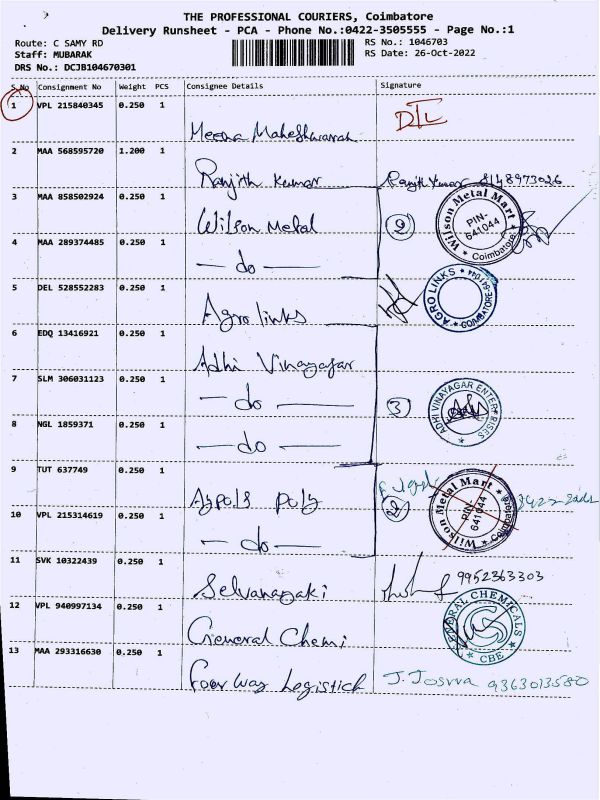 THE PROFESSIONAL COURIERS, Coimbatore
Delivery Runsheet - PCA - Phone No.:0422-3505555 - Page No.:1
Route: C SAMY RD RS No.: 1046703
Staff: MUBARAK RS Date: 26-Oct-2022
DRS No.: DCJB104670301
S.No Consignment No Weight PCS Consignee Details Signature
1 VPL 215840345 0.250 1
Meena Maheshwarah DTL
2 MAA 568595720 1.200 1
Ranjith Kumar Ranjith Kumar 8148973026
3 MAA 858502924 0.250 1
Wilson Metal 2 Wilson Metal Mart PIN-641044 Coimbatore
4 MAA 289374485 0.250 1
— do —
5 DEL 528552283 0.250 1
Agro links AGRO LINKS COIMBATORE-641044
6 EDQ 13416921 0.250 1
Adhi Vinayagar
7 SLM 306031123 0.250 1
— do — 3 ADHI VINAYAGAR ENTERPRISES
8 NGL 1859371 0.250 1
— do —
9 TUT 637749 0.250 1
Poly Wilson Metal Mart PIN-641044 Coimbatore
10 VPL 215314619 0.250 1
— do —
11 SVK 10322439 0.250 1
Selvanayaki 9952363303
12 VPL 940997134 0.250 1
General Chemi GENERAL CHEMICALS CBE
13 MAA 293316630 0.250 1
Four way Logistick J. Josvva 9363013580